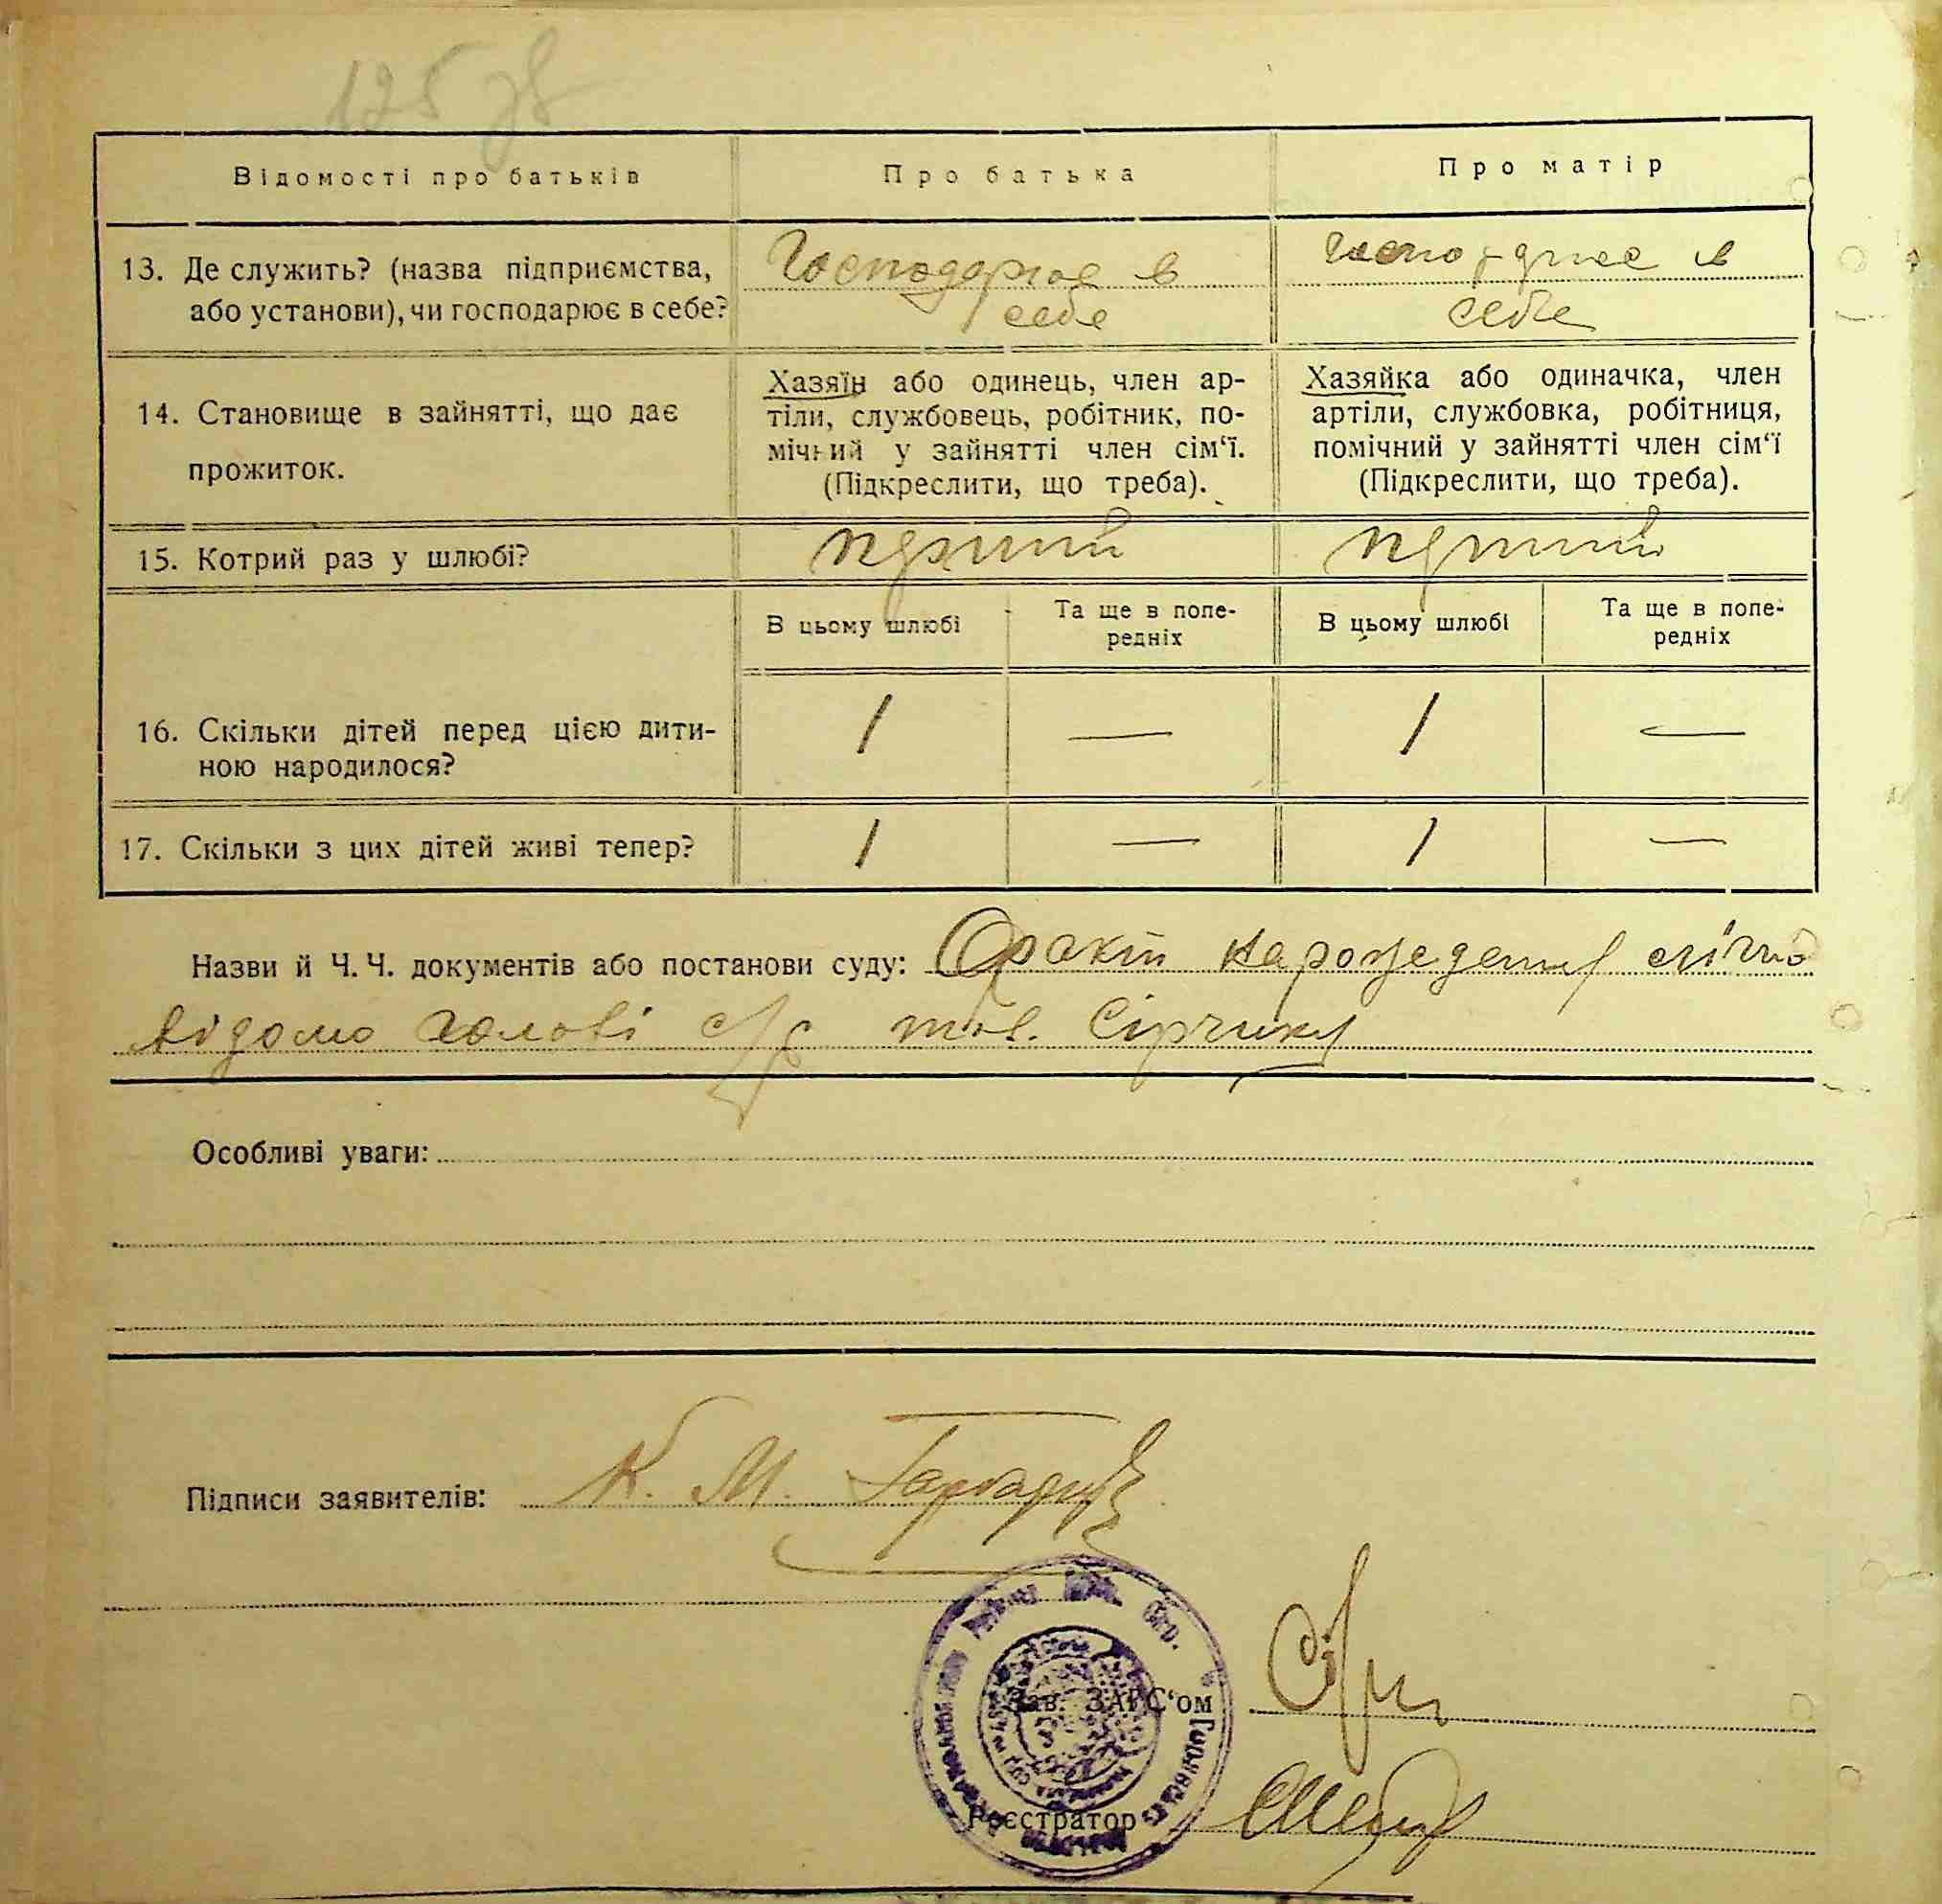 125 зв
Відомості про батьків
Про батька
Про матір
13. Де служить? (назва підприємства,
або установи), чи господарює в себе?
Господарює в
себе
господарює в
себе
14. Становище в зайнятті, що дає
прожиток.
Хазяїн або одинець, член ар-
тіли, службовець, робітник, по-
мічний у зайнятті член сім‘ї.
(Підкреслити, що треба).
Хазяйка або одиначка, член
артіли, службовка, робітниця,
помічний у зайнятті член сім‘ї
(Підкреслити, що треба).
15. Котрий раз у шлюбі?
перший
перший
В цьому шлюбі
Та ще в попе-
редніх
В цьому шлюбі
Та ще в попе-
редніх
16. Скільки дітей перед цією дити-
ною народилося?
1 — 1 —
17. Скільки з цих дітей живі тепер?
1 — 1 —
Назви й Ч. Ч. документів або постанови суду: Факт народження
відомо голові с/р тов. Сірчику
Особливі уваги:
Підписи заявителів: К. М.
Зав. ЗАГС‘ом
Реєстратор